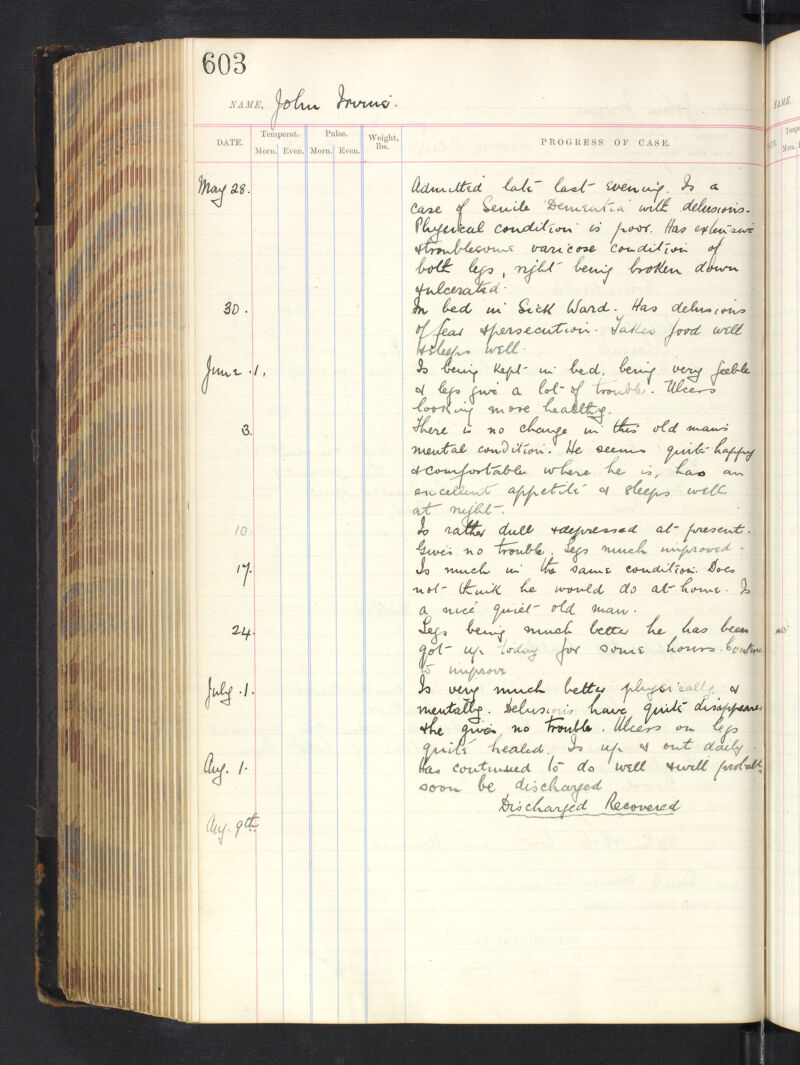 603
NAME, John Irvine.
DATE. Temperat. Pulse. Weight, lbs. PROGRESS OF CASE.
Morn. Even. Morn. Even.
May 28. Admitted late last evening. Is a
case of Senile Dementia with delusions.
Physical condition is poor. Has extensive
& troublesome varicose condition of
both legs, right being broken down
& ulcerated.
30. In bed in Sick Ward. Has delusions
of fear & persecution. Takes food well
& sleeps well.
June 1. Is being kept in bed, being very feeble
& legs give a lot of trouble. Ulcers
looking more healthy.
3. There is no change in this old man's
mental condition. He seems quite happy
& comfortable where he is, has an
excellent appetite & sleeps well
at night.
10. Is rather dull & depressed at present.
Gives no trouble. Legs much improved.
17. Is much in the same condition. Does
not think he would do at home. Is
a nice quiet old man.
24. Legs being much better he has been
got up today for some hours. Continues
to improve
July 1. Is very much better physically &
mentally. Delusions have quite disappeared
& he gives no trouble. Ulcers on legs
quite healed. Is up & out daily.
Aug. 1. Has continued to do well & will probably
soon be discharged
Discharged Recovered
Aug. 9th.
NAME.